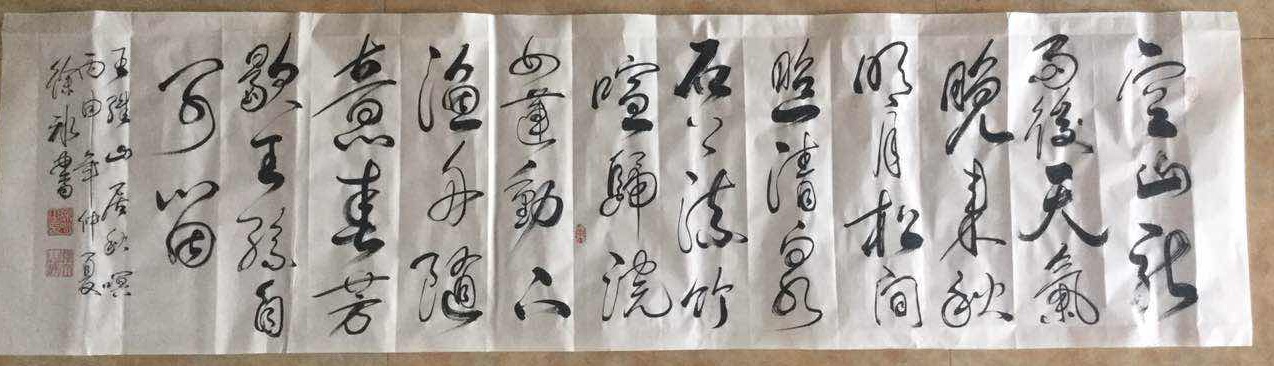 空山新
雨後天氣
晚来秋
明月松間
照清泉
石上流竹
喧歸浣
女蓮動下
漁舟隨
意春芳
歇王孫自
可留
王維山居秋暝
丙申年仲夏
徐書